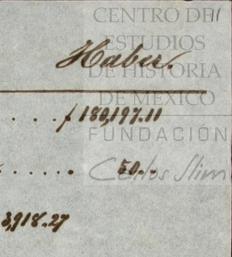 CENTRO DE
ESTUDIOS
Haber.
DE HISTORIA
DE MÉXICO
. . . . f 180,197.11
FUNDACIÓN
. . . . . 50..
Carlos Slim
3,918.27